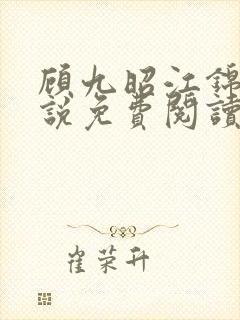 顾九昭江锦
說免費閱讀
崔荣升